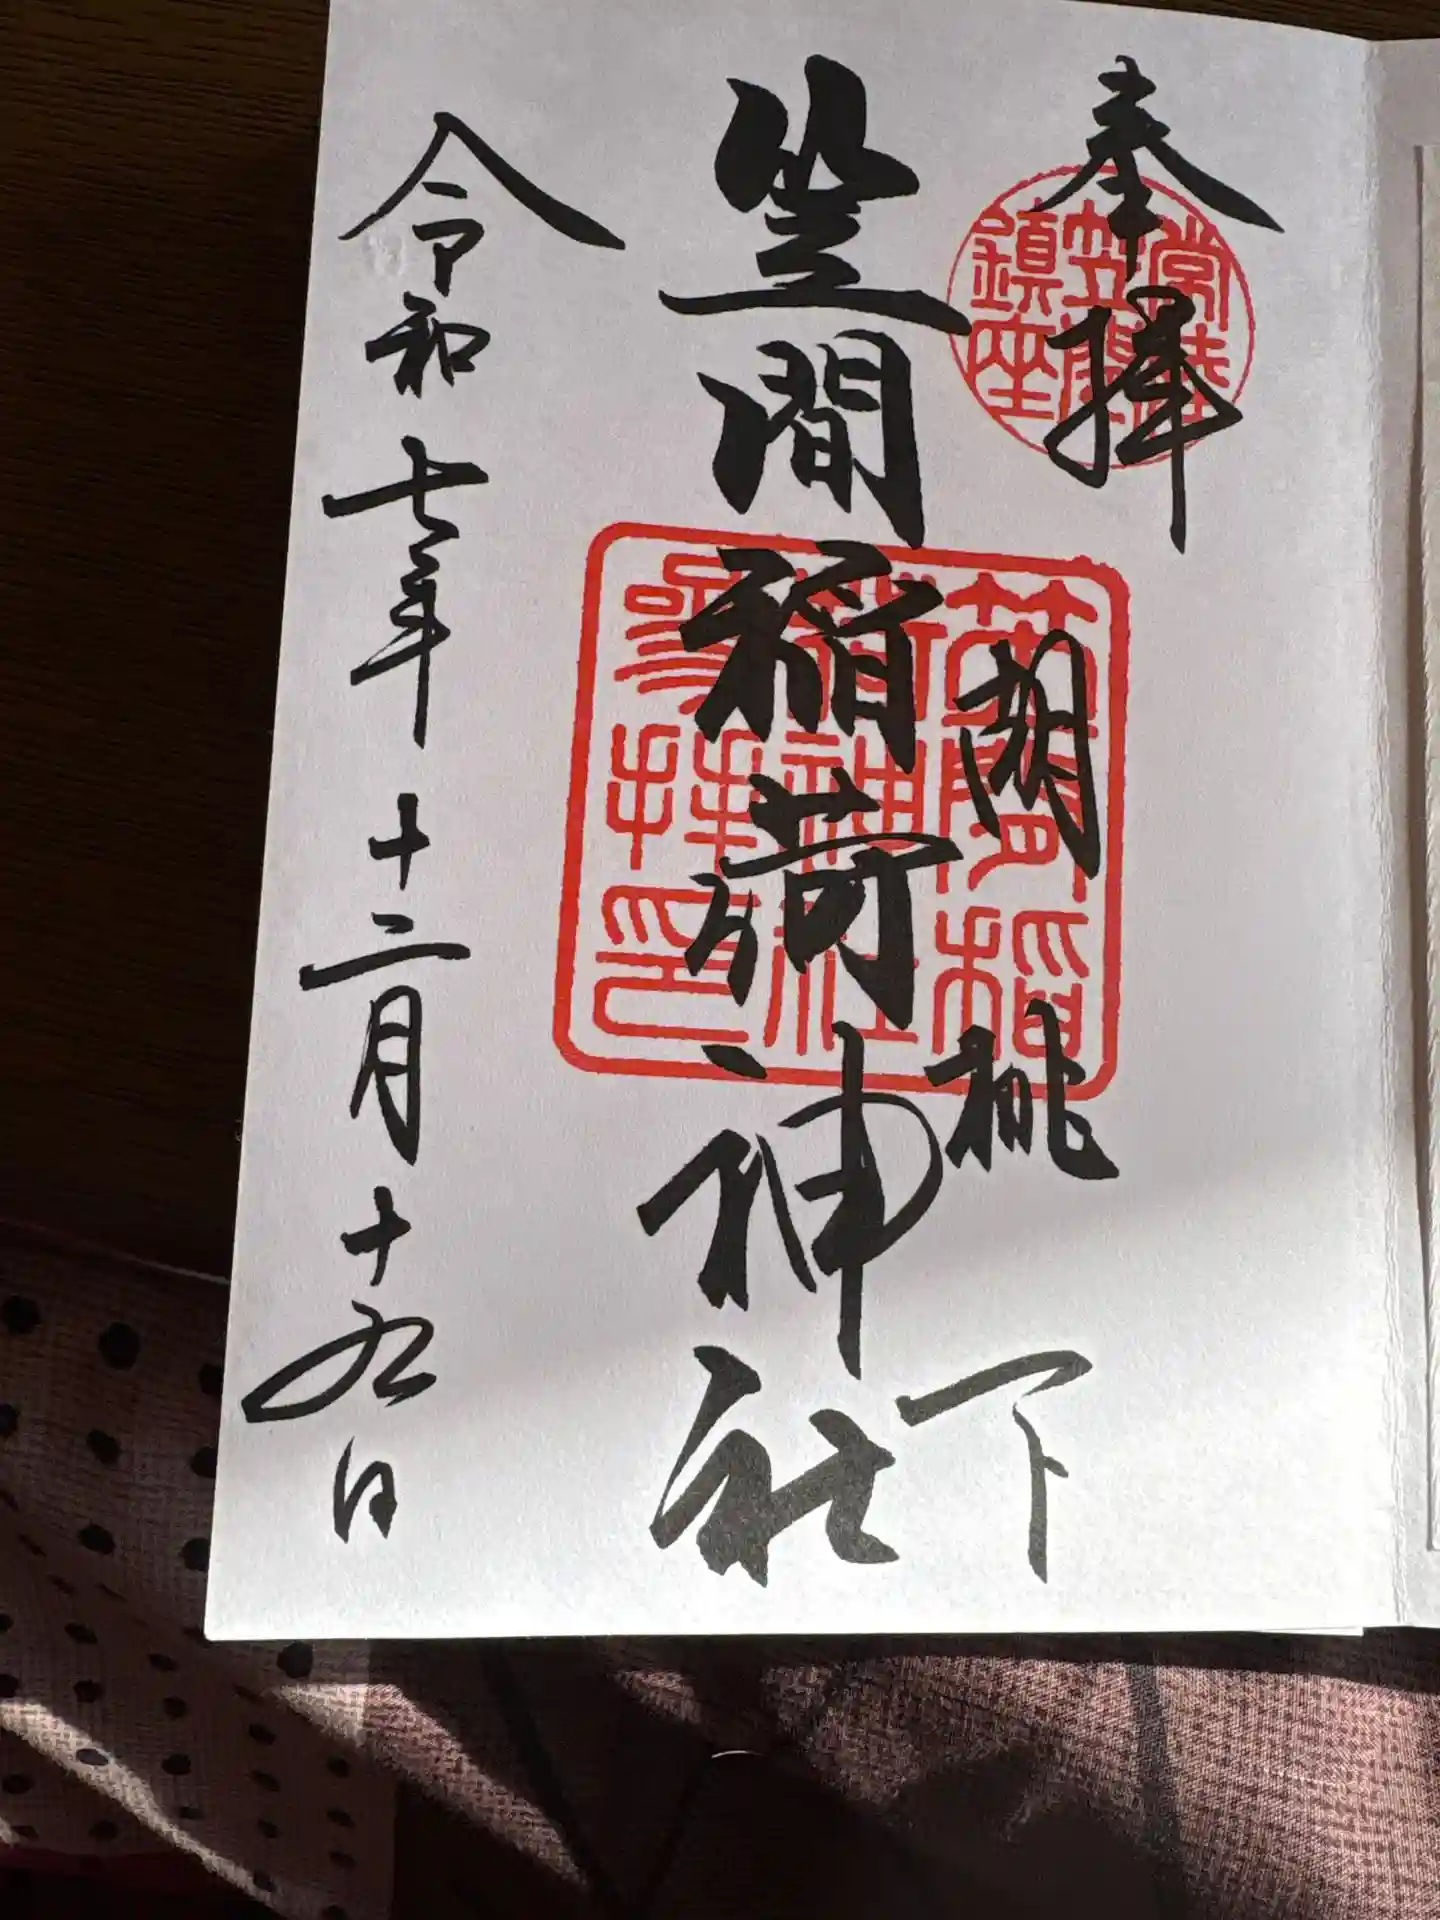 奉拝
常陸
笠間
鎮座
胡桃下
笠間稲荷神社
笠間稲
荷神社
参拝印
令和七年十二月十九日